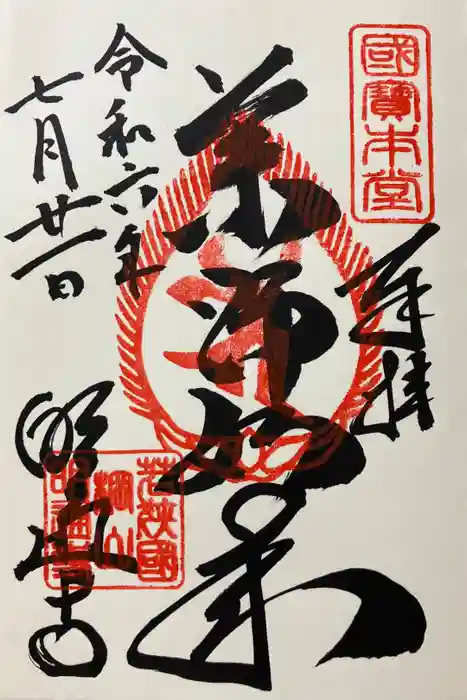 國寳本堂
奉拝
薬師如来
令和六年
七月廿一日
明通寺
若狹國
棡山
明通寺